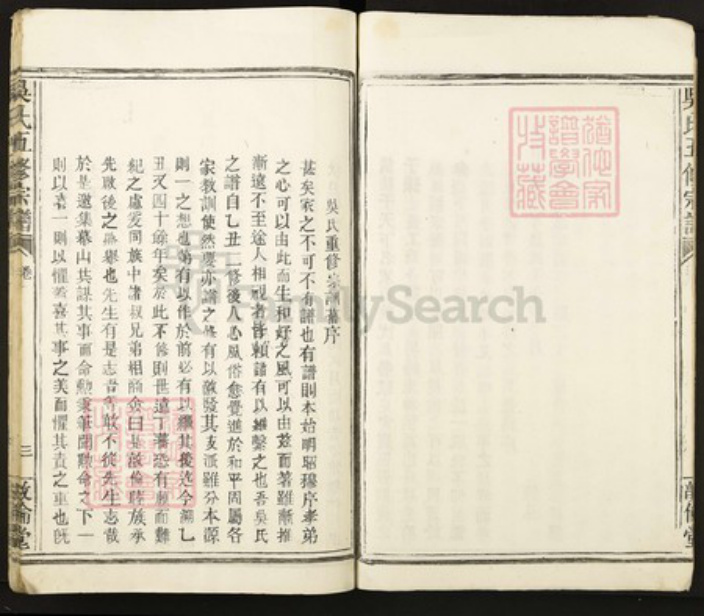 吳氏五修宗譜
吳氏重修宗譜舊序
甚矣家之不可不有譜也有譜則本始明昭穆序孝弟
之心可以由此而生和好之風可以由茲而著雖漸推
漸遠不至途人相視者皆賴譜有以維繫之也吾吳氏
之譜自乙丑一修後人心風俗愈覺進於和平固屬各
家教訓使然要亦譜之修有以啟發其支派雖分本源
則一之想也第有以作於前必有以繼其後迄今溯乙
丑又四十餘年矣於此不修則世遠丁繁恐有難
紀之處爰同族中諸叔兄弟相商僉曰是敦倫睦族承
先啟後之舉也先生有是志者敢不從先生志哉
於是邀集泰山共謀其事而命勲秉筆聞勲命之下一
則以喜一則以懼蓋喜其事之美而懼其責之重也既
吳氏五修宗譜
卷
三
敦倫堂
敦倫堂
FamilySearch